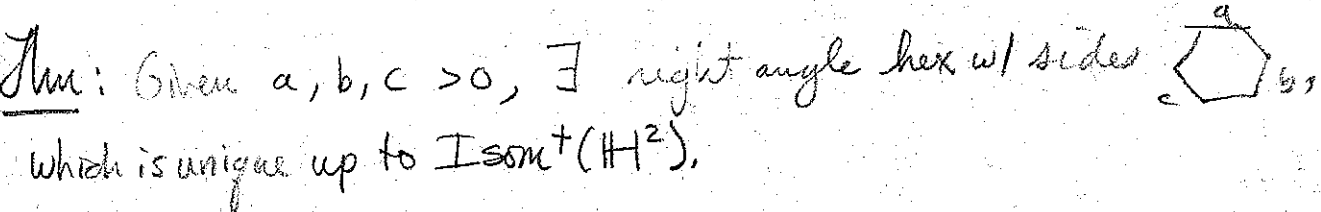 Thm: Given a, b, c >0, ∃ right angle hex w/ sides a b, c
which is unique up to Isom⁺(ℍ²).